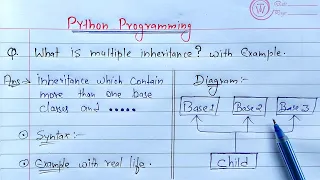 Python Programming
Q. What is multiple inheritance? with Example.
Ans → Inheritance which contain
more than one base
classes and .....
Syntax:-
Example with real life.
Diagram:-
Base1 Base2 Base3
Child